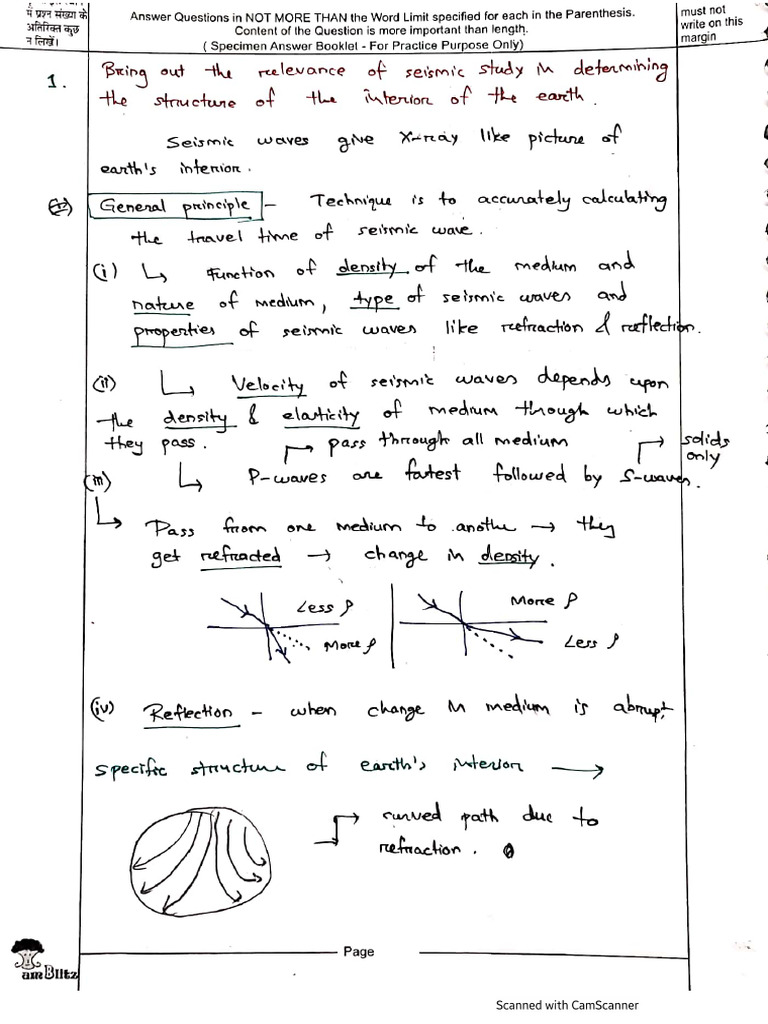 में प्रश्न संख्या के
अतिरिक्त कुछ
न लिखें।
Answer Questions in NOT MORE THAN the Word Limit specified for each in the Parenthesis.
Content of the Question is more important than length.
( Specimen Answer Booklet - For Practice Purpose Only)
must not
write on this
margin
1. Bring out the relevance of seismic study in determining
the structure of the interior of the earth.
Seismic waves give X-ray like picture of
earth's interior.
General principle - Technique is to accurately calculating
the travel time of seismic wave.
(i) ↳ Function of density of the medium and
nature of medium, type of seismic waves and
properties of seismic waves like refraction & reflection.
(ii) ↳ Velocity of seismic waves depends upon
the density & elasticity of medium through which
they pass.
pass through all medium
solids
only
(iii) ↳ P-waves are fastest followed by S-waves.
↳ Pass from one medium to another → they
get refracted → change in density.
Less ρ
More ρ
More ρ
Less ρ
(iv) Reflection - when change in medium is abrupt
specific structure of earth's interior →
curved path due to
refraction.
Page
amBlitz
Scanned with CamScanner